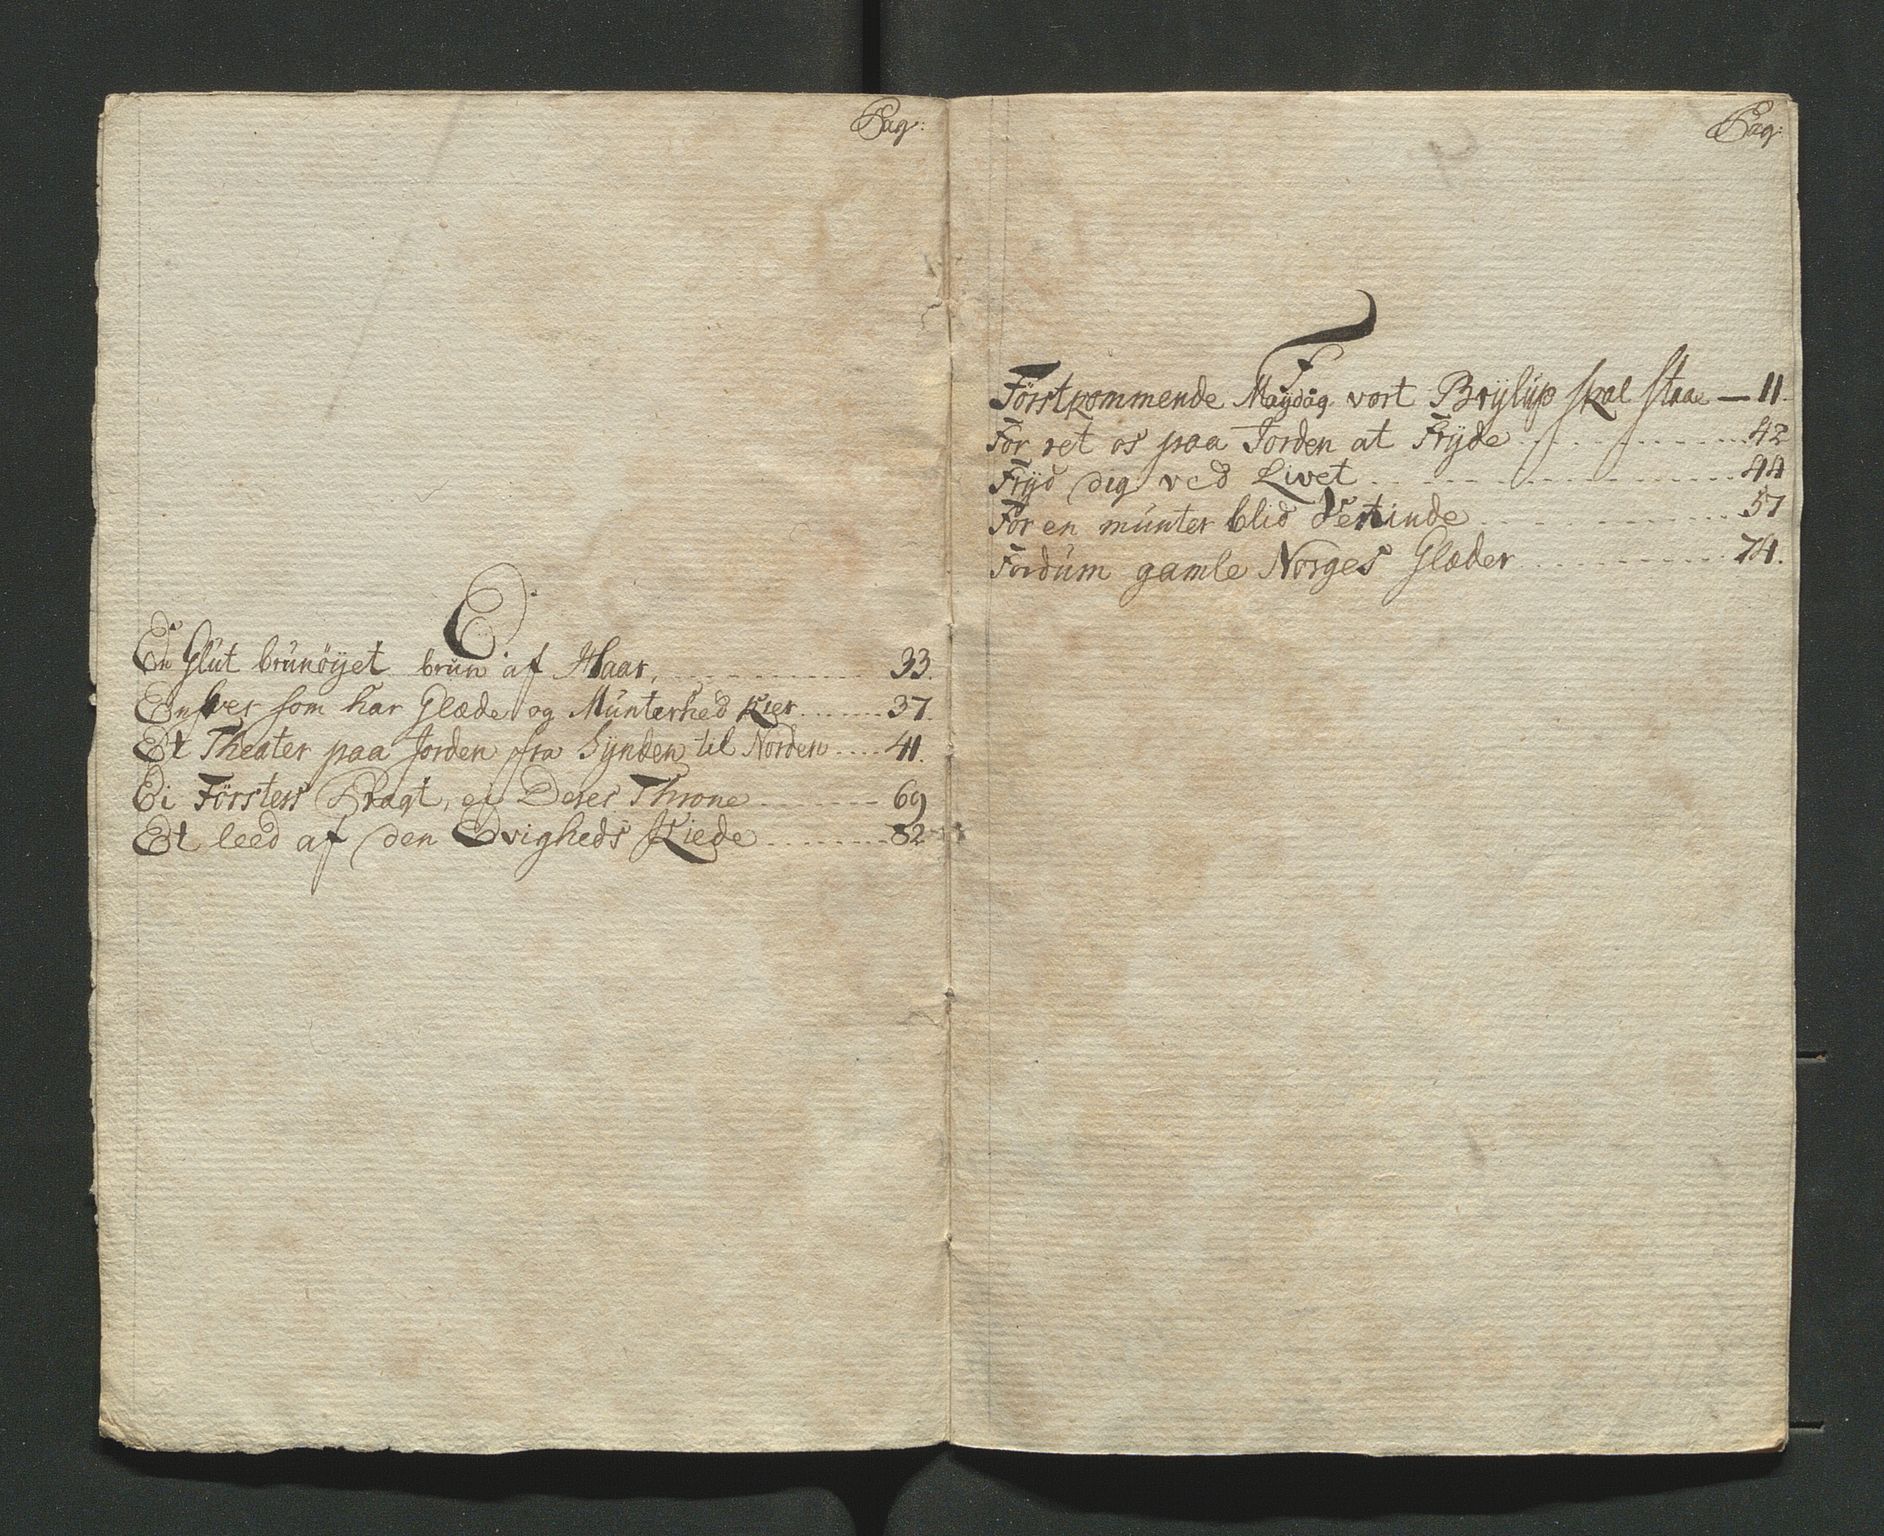 Pag:
E
En Glut brunøyet brun af Haar, 33.
Enhver som har Glæde og Munterhed kier 37.
Et Theater paa Jorden fra Synden til Norden 41.
Ei Førsters Pragt, ei Deres Throne 69
Et leed af den Evigheds Kiede 82
Pag:
F
Førstkommende Maydag vort Brylup skal staae — 11.
For ret os paa Jorden at Fryde 42
Fryd dig ved Livet 44
For en munter blid Vertinde 57
Fordum gamle Norges Glæder 74.